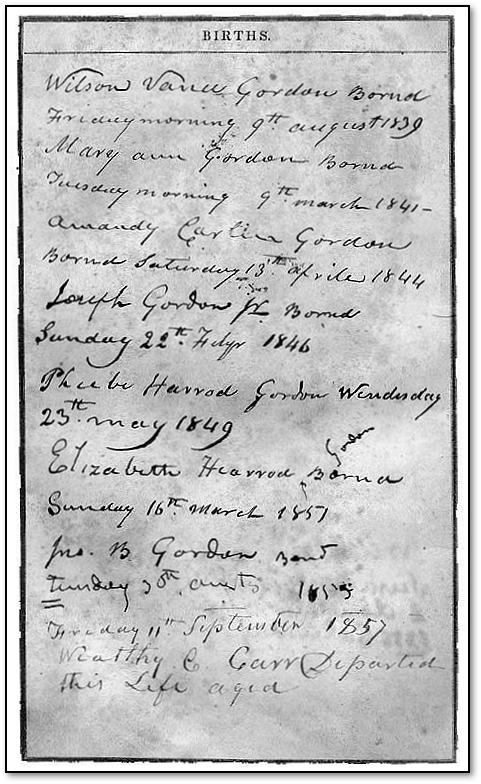 BIRTHS.
Wilson Vance Gordon Bornd
Friday morning 9th august 1839
Mary ann Gordon Bornd
Tuesday morning 9th march 1841 -
Amandy Carlin Gordon
Bornd Saturday 13th Aprile 1844
Joseph Gordon Jr Bornd
Sunday 22th Febr 1846
Phebe Harrod Gordon Wendsday
23th may 1849
Gordon
Elizabeth Hearrod Bornd
Sunday 16th March 1851
Jno. B Gordon Bornd
tuesday 30th 1853
Friday 11th September 1857
Wealthy C Carr Departed
this Life aged